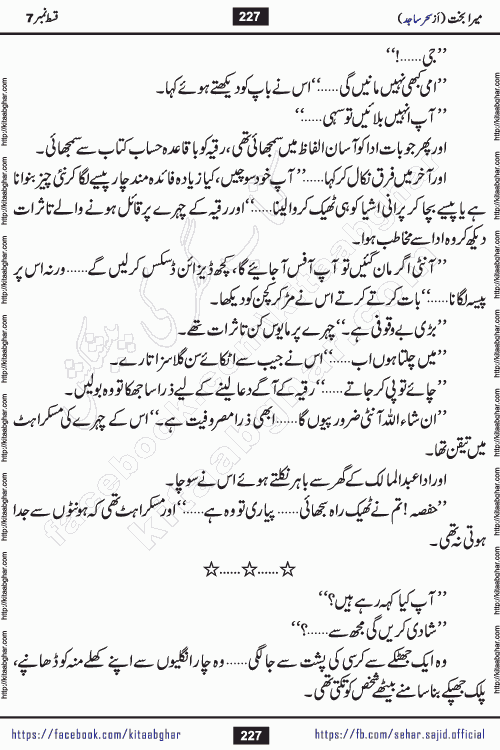 میرا بخت (از سحر ساجد)
227
قسط نمبر 7
’’جی ......!‘‘
’’امی کبھی نہیں مانیں گی ......‘‘ اس نے باپ کو دیکھتے ہوئے کہا۔
’’آپ انہیں بلائیں تو سہی ......‘‘
اور پھر جو بات ادا کو آسان الفاظ میں سمجھائی تھی، رقیہ کو باقاعدہ حساب کتاب سے سمجھائی۔
اور آخر میں فرق نکال کر کہا ......’’ آپ خود سوچیں، کیا زیادہ فائدہ مند چار پیسے لگا کر نئی چیز بنوانا
ہے یا پیسے بچا کر پرانی اشیا کو ہی ٹھیک کروا لینا ......‘‘ اور رقیہ کے چہرے پر قائل ہونے والے تاثرات
دیکھ کر وہ ادا سے مخاطب ہوا۔
’’آنٹی اگر مان گئیں تو آپ آفس آ جائیے گا، کچھ ڈیزائن ڈسکس کر لیں گے ...... ورنہ اس پر
پیسہ لگانا ......‘‘ بات کرتے کرتے اس نے مڑ کر کچن کو دیکھا۔
’’بڑی بے وقوفی ہے۔‘‘ چہرے پر مایوس کن تاثرات تھے۔
’’میں چلتا ہوں اب ......‘‘ اس نے جیب سے اٹکائے سن گلاسز اتارے۔
’’چائے تو پی کر جاتے ......‘‘ رقیہ کے آگے دعا لینے کے لیے ذرا سا جھکا تو وہ بولیں۔
’’ان شاء اللہ آنٹی ضرور پیوں گا ...... ابھی ذرا مصروفیت ہے۔‘‘ اس کے چہرے کی مسکراہٹ
میں تیقن تھا۔
اور ادا عبدالمالک کے گھر سے باہر نکلتے ہوئے اس نے سوچا۔
’’حفصہ! تم نے ٹھیک راہ سجھائی ...... پیاری تو وہ ہے ......‘‘ اور مسکراہٹ تھی کہ ہونٹوں سے جدا
ہوتی نہ تھی۔
☆......☆......☆
’’آپ کیا کہہ رہے ہیں؟‘‘
’’شادی کریں گی مجھ سے ......؟‘‘
وہ ایک جھٹکے سے کرسی کی پشت سے جا لگی ...... وہ چار انگلیوں سے اپنے کھلے منہ کو ڈھانپے،
پلک جھپکے بنا سامنے بیٹھے شخص کو تکتی تھی۔
https://facebook.com/kitaabghar
227
https://fb.com/sahar.sajid.official
http://kitaabghar.com